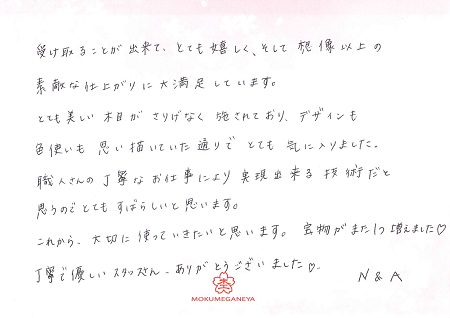 受け取ることが出来て、とても嬉しく、そして想像以上の
素敵な仕上がりに大満足しています。
とても美しい木目がさりげなく施されており、デザインも
色使いも思い描いていた通りでとても気に入りました。
職人さんの丁寧なお仕事により実現出来る技術だと
思うのでとてもすばらしいと思います。
これから、大切に使っていきたいと思います。宝物がまた1つ増えました♡
丁寧で優しいスタッフさん、ありがとうございました♡
N & A
MOKUMEGANEYA